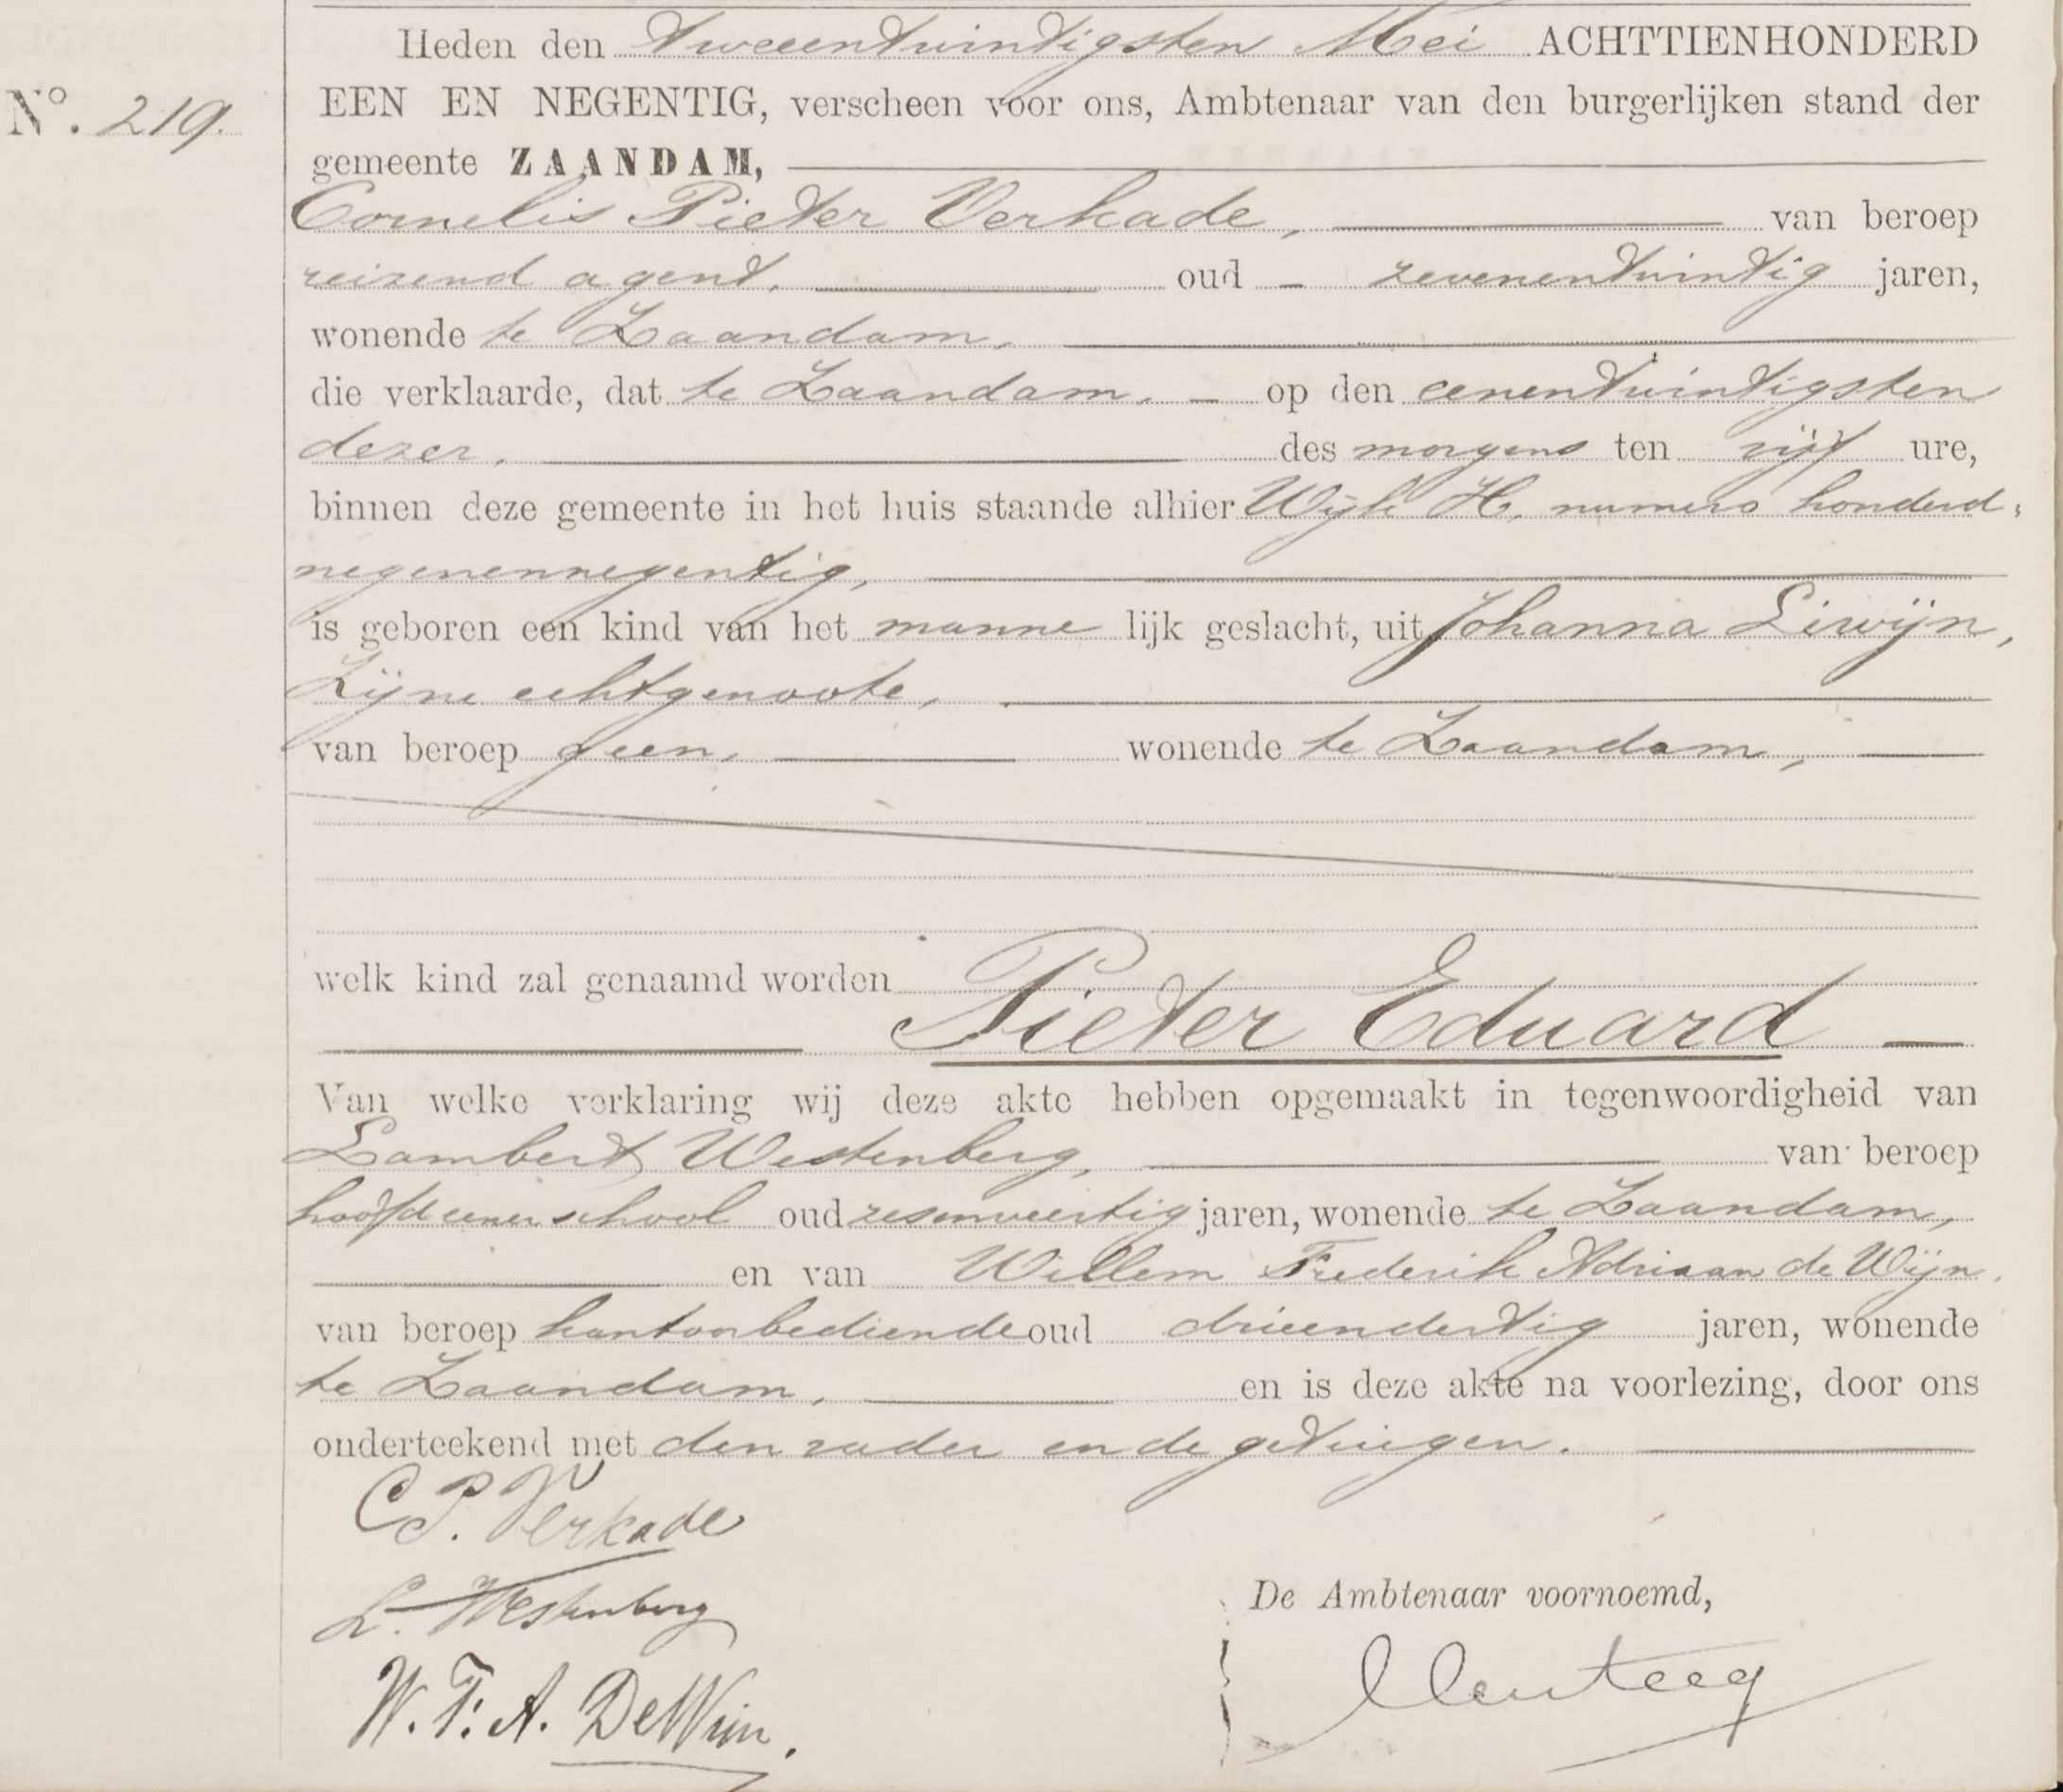 Heden den tweeentwintigsten Mei ACHTTIENHONDERD
EEN EN NEGENTIG, verscheen voor ons, Ambtenaar van den burgerlijken stand der
No. 219.
gemeente ZAANDAM,
Cornelis Pieter Verkade, van beroep
reizend agent, oud - zevenentwintig jaren,
wonende te Zaandam,
die verklaarde, dat te Zaandam, - op den eenentwintigsten
dezer, des morgens ten vijf ure,
binnen deze gemeente in het huis staande alhier Wijk H, numero honderd-
negenennegentig,
is geboren een kind van het manne lijk geslacht, uit Johanna Liwijn,
Zijne echtgenoote,
van beroep geen, wonende te Zaandam,
welk kind zal genaamd worden
Pieter Eduard
Van welke verklaring wij deze akte hebben opgemaakt in tegenwoordigheid van
Lambert Westenberg, van beroep
hoofd eener school oud zesenveertig jaren, wonende te Zaandam,
en van Willem Frederik Adriaan de Wijn,
van beroep kantoorbediende oud drieendertig jaren, wonende
te Zaandam, en is deze akte na voorlezing, door ons
onderteekend met den vader en de getuigen.
C. P. Verkade
L. Westenberg
De Ambtenaar voornoemd,
W. F. A. De Wijn.